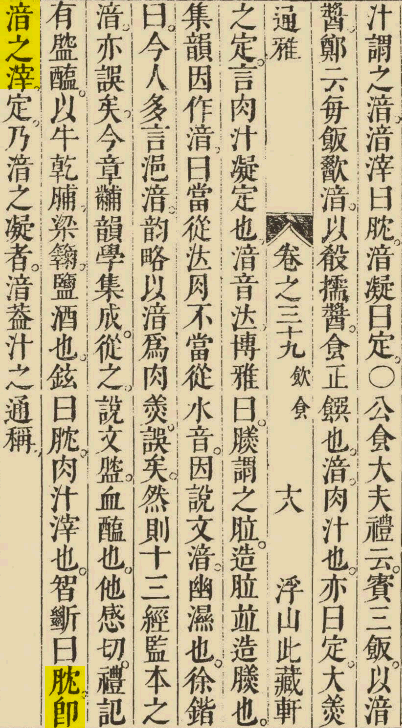 汁謂之湆湆滓曰䏙湆凝曰定○公食大夫禮云賓三飯以湆
醬鄭云每飯歠湆以殽擩醬食正饌也湆肉汁也亦曰定大羮
通雅 卷之三十九 飲食 十八 浮山此藏軒
之定言肉汁凝定也湆音汏博雅曰謂之䏠造䏠並造也
集韻因作湆曰當從汏肉不當從水音因說文湆幽濕也徐鍇
曰今人多言浥湆韵略以湆爲肉羮誤矣然則十三經監本之
湆亦誤矣今章黼韻學集成從之說文䘓血醢也他感切禮記
有䘓醢以牛乾脯粱䉛鹽酒也鉉曰䏙肉汁滓也智斷曰䏙卽
湆之滓定乃湆之凝者湆葢汁之通稱